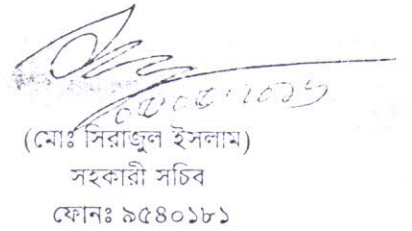 (মোঃ সিরাজুল ইসলাম)
সহকারী সচিব
ফোনঃ ৯৫৪০১৮১